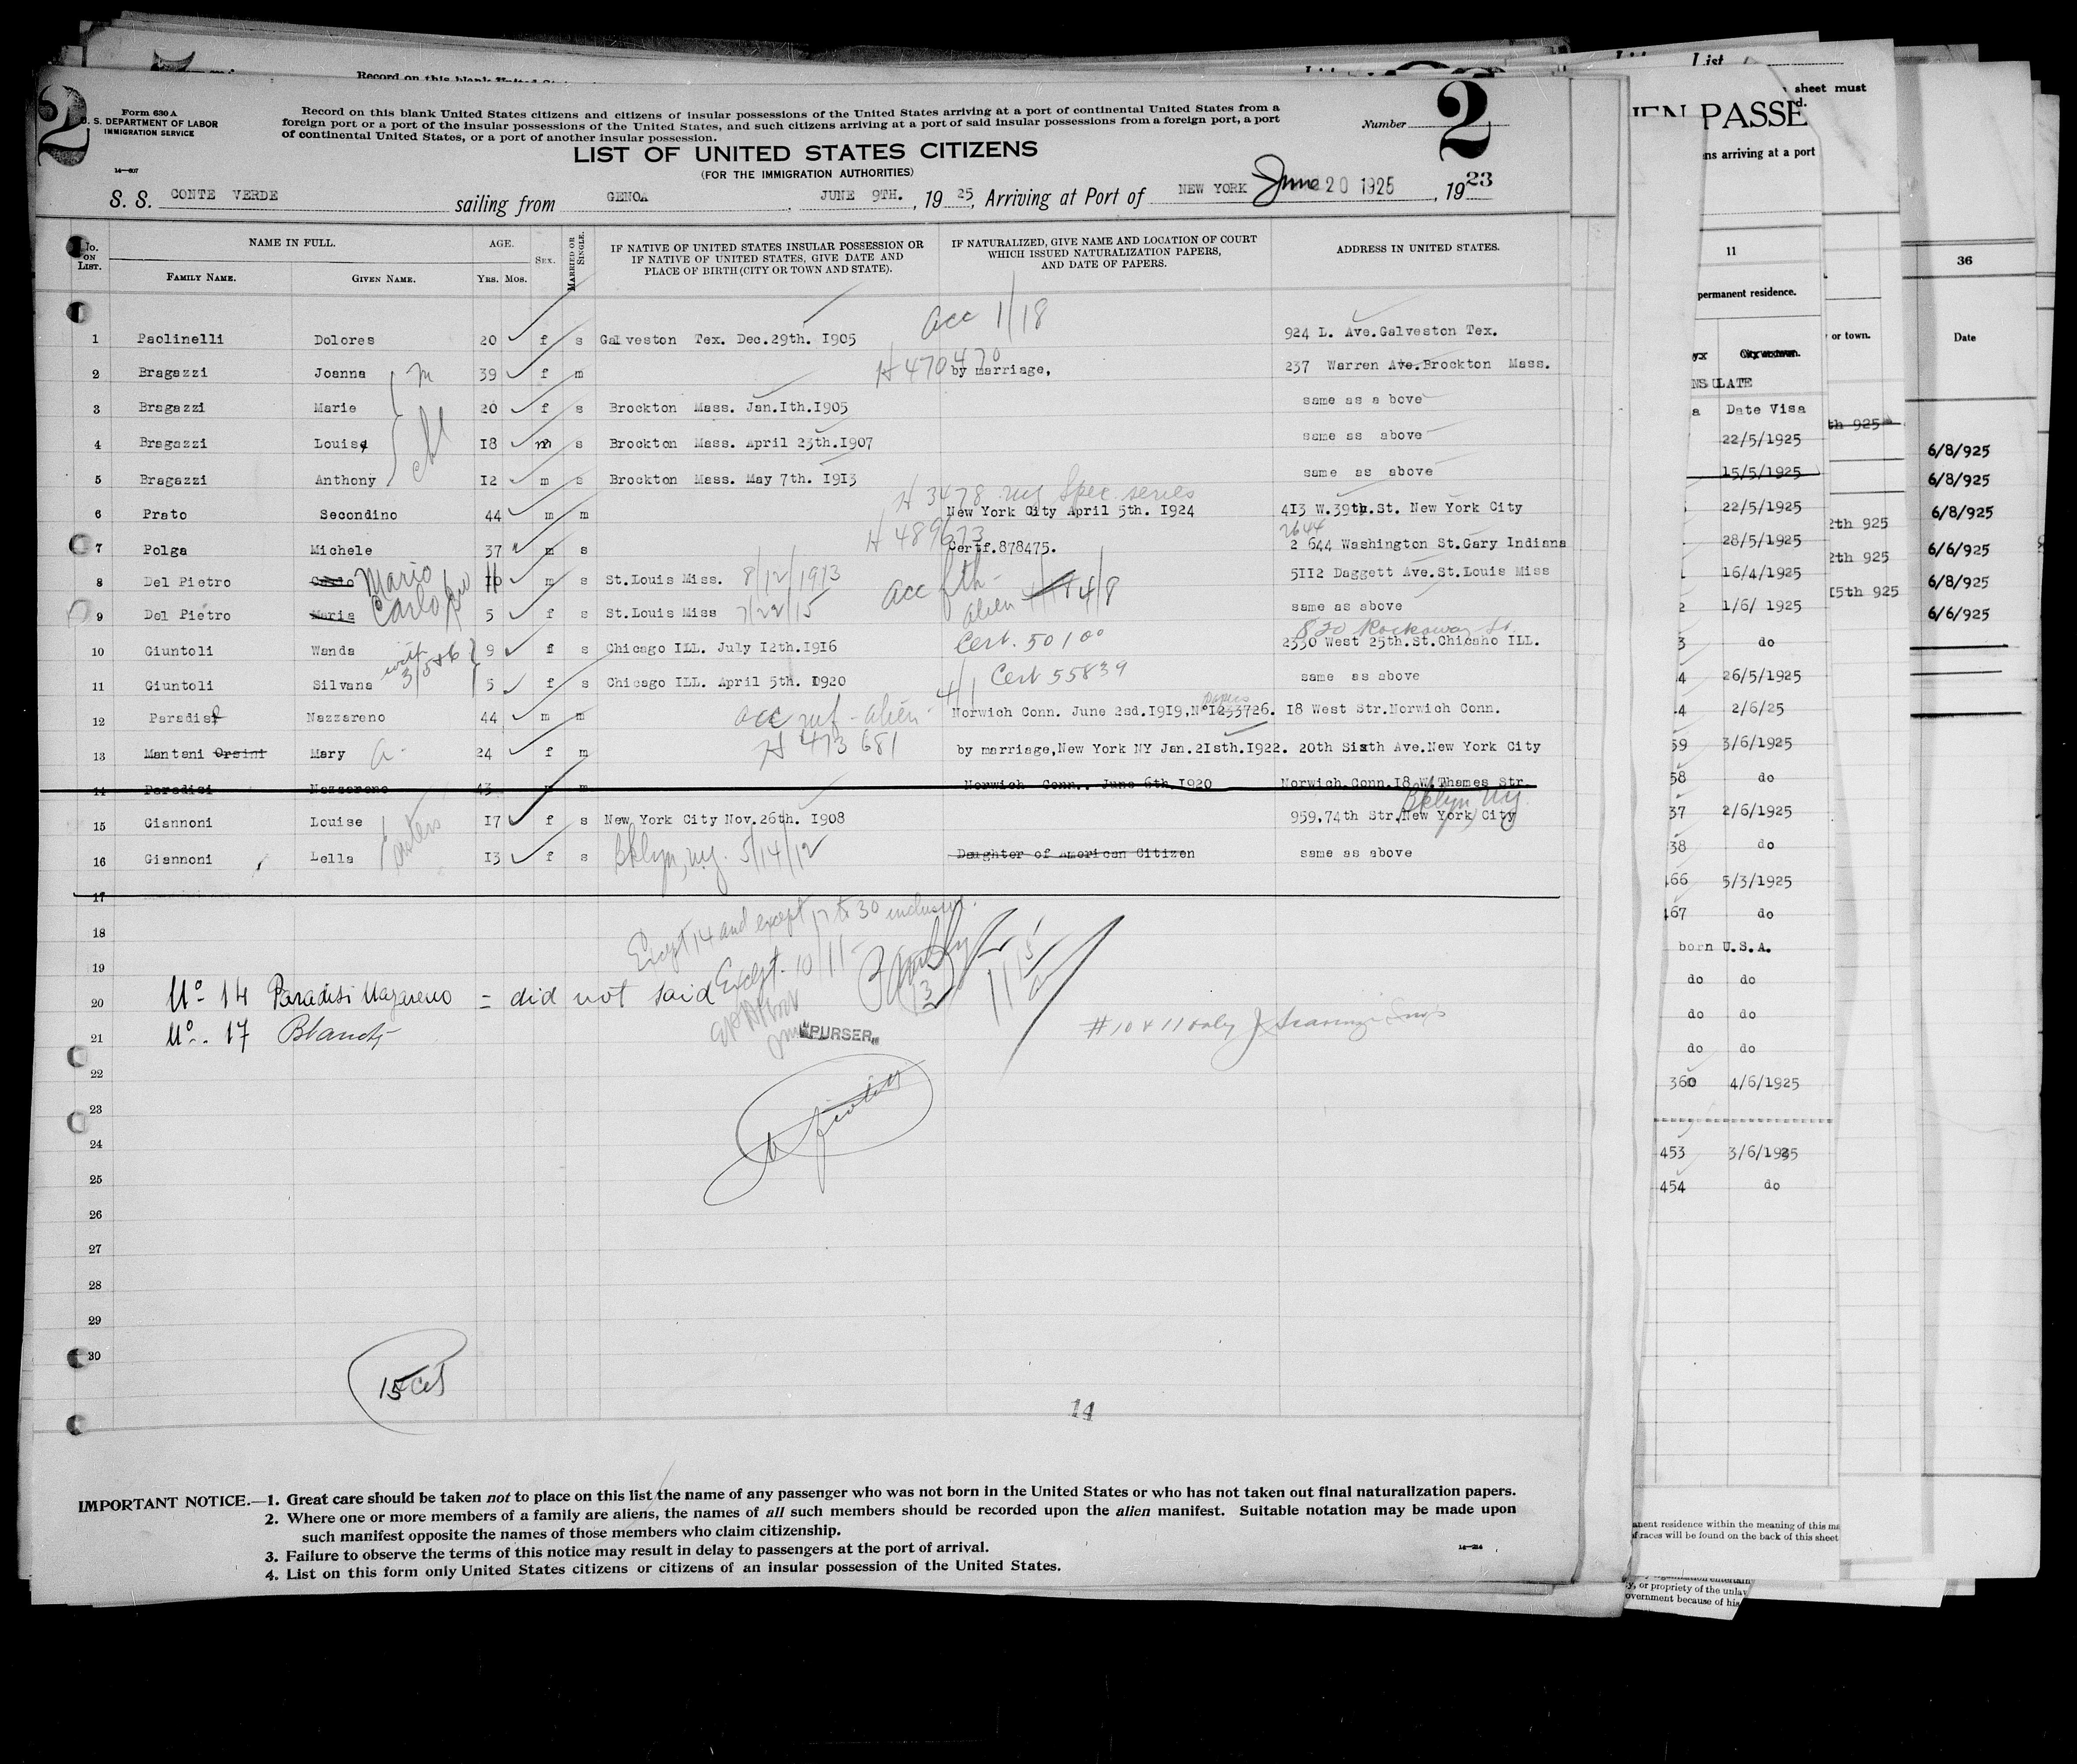 Record on this blank United St
List
2
Form 630 A
U. S. DEPARTMENT OF LABOR
IMMIGRATION SERVICE
14—607
Record on this blank United States citizens and citizens of insular possessions of the United States arriving at a port of continental United States from a
foreign port or a port of the insular possessions of the United States, and such citizens arriving at a port of said insular possessions from a foreign port, a port
of continental United States, or a port of another insular possession.
Number 2
LIST OF UNITED STATES CITIZENS
(FOR THE IMMIGRATION AUTHORITIES)
S. S. CONTE VERDE sailing from GENOA JUNE 9TH. , 19 25, Arriving at Port of NEW YORK June 20 1925 , 1923
No. ON LIST. NAME IN FULL. AGE. SEX. MARRIED OR SINGLE. IF NATIVE OF UNITED STATES INSULAR POSSESSION OR IF NATIVE OF UNITED STATES, GIVE DATE AND PLACE OF BIRTH (CITY OR TOWN AND STATE). IF NATURALIZED, GIVE NAME AND LOCATION OF COURT WHICH ISSUED NATURALIZATION PAPERS, AND DATE OF PAPERS. ADDRESS IN UNITED STATES.
FAMILY NAME. GIVEN NAME. YRS. MOS.
acc 1/18
1 Paolinelli Dolores 20 f s Galveston Tex. Dec.29th. I905 924 L. Ave.Galveston Tex.
H 470470
2 Bragazzi Joanna m 39 f m by marriage, 237 Warren Ave.Brockton Mass.
3 Bragazzi Marie 20 f s Brockton Mass. Jan.Ith.I905 same as a bove
4 Bragazzi Louis I8 m s Brockton Mass. April 23th.I907 same as above
5 Bragazzi Anthony I2 m s Brockton Mass. May 7th. I9I3 same as above
H 3478 ny Spec. series
6 Prato Secondino 44 m m New York City April 5th. I924 4I3 W.39th.St. New York City
H 489673 2644
7 Polga Michele 37 m s Certf.878475. 2 644 Washington St.Gary Indiana
8 Del Pietro Carlo Mario 11 m s St.Louis Miss. 8/12/1913 5II2 Daggett Ave.St.Louis Miss
acc fth- alien 4/8
9 Del Pietro Maria Carlo 5 f s St.Louis Miss 7/22/15 same as above
820 Rockaway St.
10 Giuntoli Wanda 9 f s Chicago ILL. July I2th.I9I6 Cert. 50100 2330 West 25th.St.Chicaho ILL.
with 3/5&6
11 Giuntoli Silvana 5 f s Chicago ILL. April 5th. I920 4/1 Cert 55839 same as above
12 Paradisi Nazzareno 44 m m acc mf - alien - Norwich Conn. June 2sd.I9I9,N°I233726. I8 West Str.Norwich Conn.
H 473681
13 Mantani Orsini Mary 24 f m by marriage,New York NY Jan.2Isth.I922. 20th Sixth Ave.New York City
14 Paradisi Nazzareno 43 m m Norwich Conn.. June 6th I920 Norwich Conn.I8 W.Thames Str.
Bklyn, Ny.
15 Giannoni Louise I7 f s New York City Nov.26th. I908 959,74th Str.New York City
sisters
16 Giannoni Lella I3 f s Bklyn, ny. 5/14/12 Daughter of American Citizen same as above
17
Except 14 and except 17 to 30 inclusive.
18
Except. 10/11-
19
20 N° 14 Paradisi Nazareno = did not said
21 N°. 17
PURSER
#10 & 11 only
22
23
24
25
26
27
28
29
30
14
IMPORTANT NOTICE.—1. Great care should be taken not to place on this list the name of any passenger who was not born in the United States or who has not taken out final naturalization papers.
2. Where one or more members of a family are aliens, the names of all such members should be recorded upon the alien manifest. Suitable notation may be made upon
such manifest opposite the names of those members who claim citizenship.
3. Failure to observe the terms of this notice may result in delay to passengers at the port of arrival.
4. List on this form only United States citizens or citizens of an insular possession of the United States.
14—214
sheet must
EN PASSE
ens arriving at a port
11
permanent residence.
NSULATE
a Date Visa
22/5/1925
15/5/1925
22/5/1925
28/5/1925
16/4/1925
2 1/6/ 1925
3 do
4 26/5/1925
4 2/6/25
59 3/6/1925
58 do
37 2/6/1925
38 do
466 5/3/1925
467 do
born U.S.A.
do do
do do
do do
360 4/6/1925
453 3/6/1925
454 do
anent residence within the meaning of this
f races will be found on the back of this sheet
y, or propriety of the unlaw
overnment because of his
or town.
th 925
2th 925
2th 925
I5th 925
36
Date
6/8/925
6/8/925
6/8/925
6/6/925
6/8/925
6/6/925